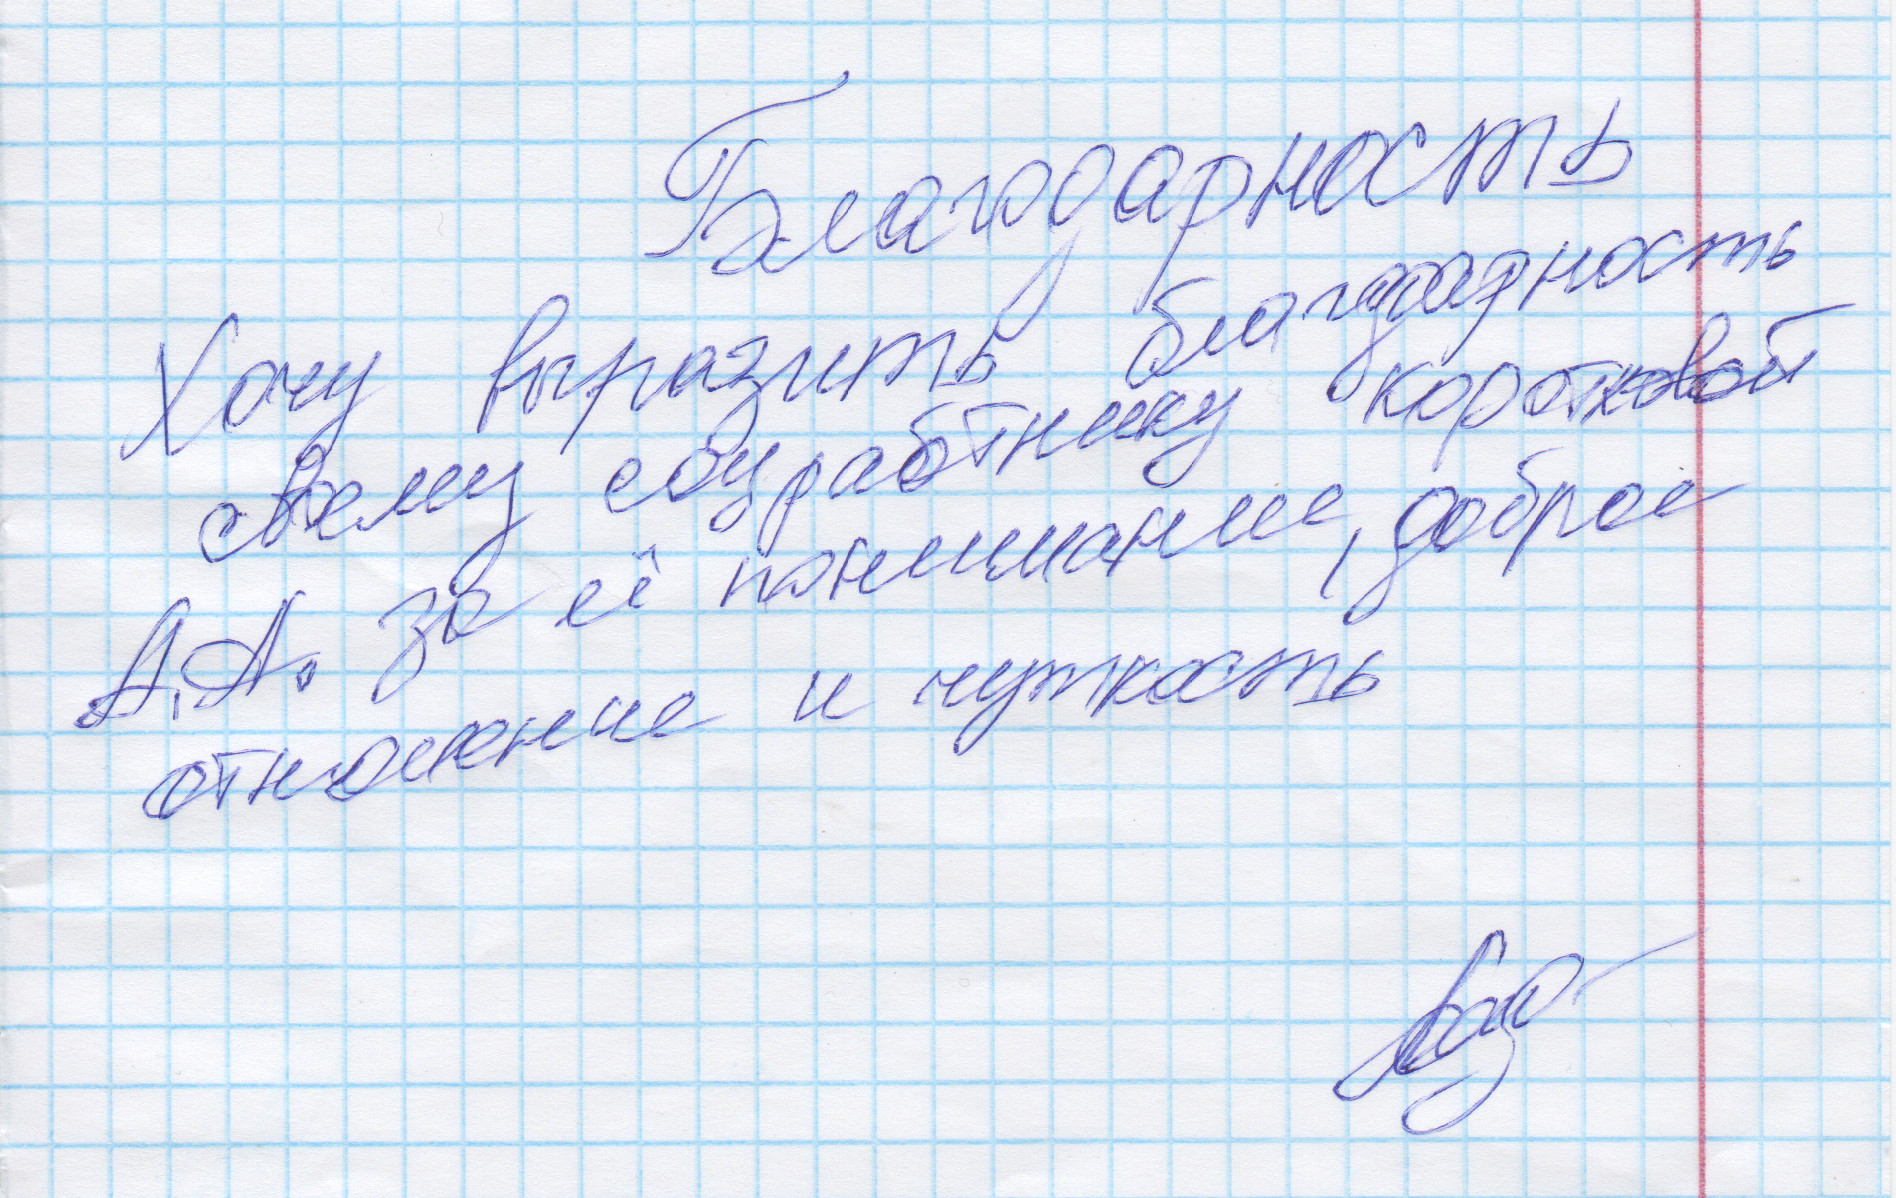 Благодарность
Хочу выразить благодарность
своему соцработнику коротковой
А.А. за её понимание, доброе
отношение и чуткость